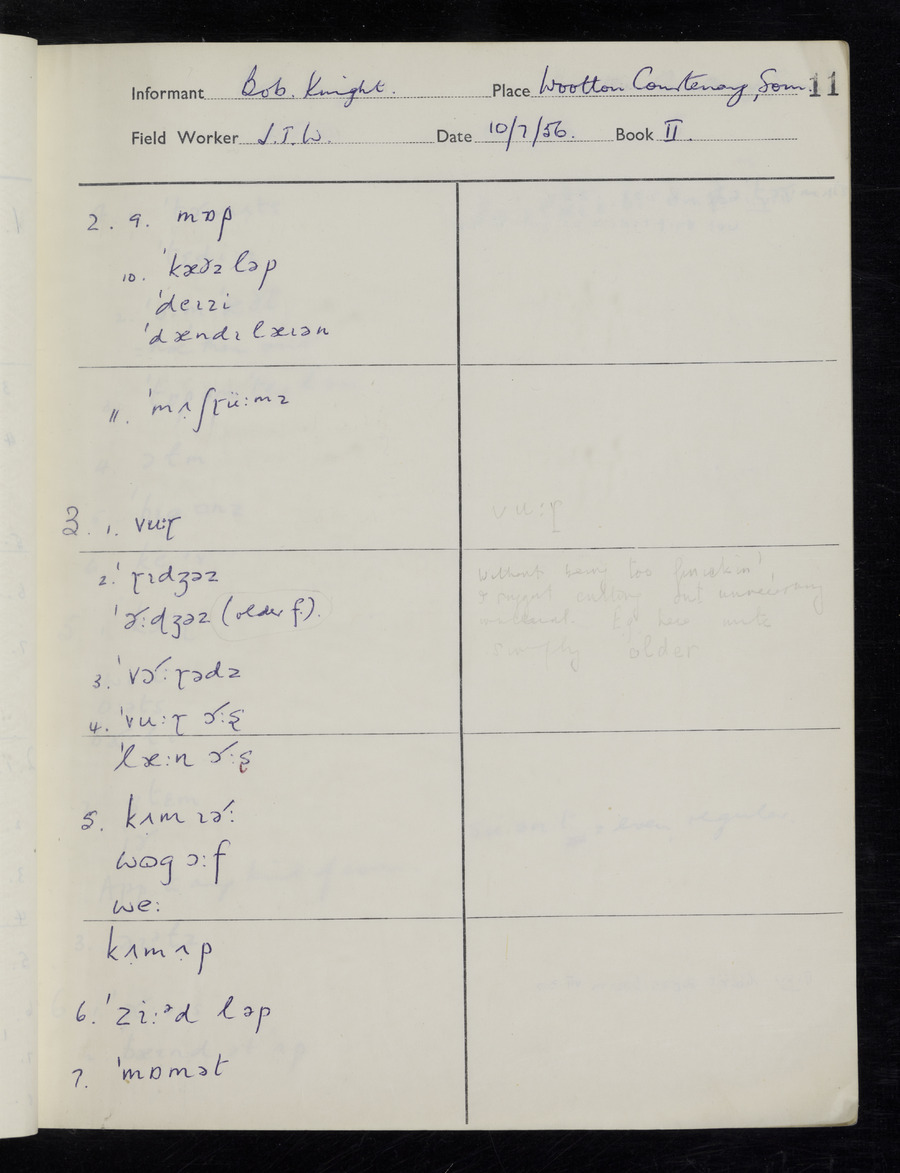 Informant Bob. Knight. Place Wootton Courtenay, Som. 11
Field Worker J.T.W. Date 10/7/56. Book II.
2. 9. mɒp
10. ˈkæɤɪ ləp
ˈdeɪzi
ˈdændɪ læɪən
11. ˈmʌ̣ʃɽüːmz
3. 1. vuːɽ
vuːɽ
2. ˈɽɪdʒəz
ˈɤːdʒəz (older f.).
Without being too finickin'
I suggest cutting out unnecessary
material. Eg here write
simply older
3. ˈvɔ́ːɽədz
4. ˈvuːɽ ɔ́ːʂ
ˈlæːn ɔ́ːʂ
5. kʌ̣m ɪɔ́ː
wɒg ɔːf
weː
kʌ̣m ʌ̣p
6. ˈziːᵊd ləp
7. ˈmɒmət